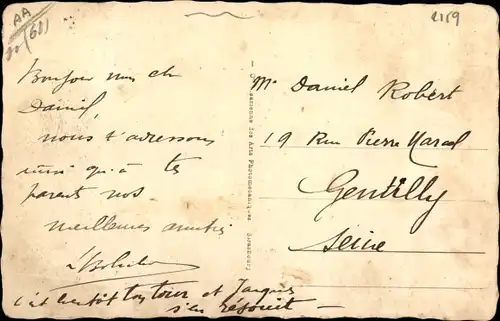 AA
(68)
2159
Bonjour mon ch
Daniel,
nous t'adressons
ainsi qu'à tes
parents nos
meilleures amitiés
c'est bientôt ton tour et Jacques
s'en réjouit —
Mr Daniel Robert
19 Rue Pierre Marcel
Gentilly
Seine
des Arts Photomécaniques - Strasbourg